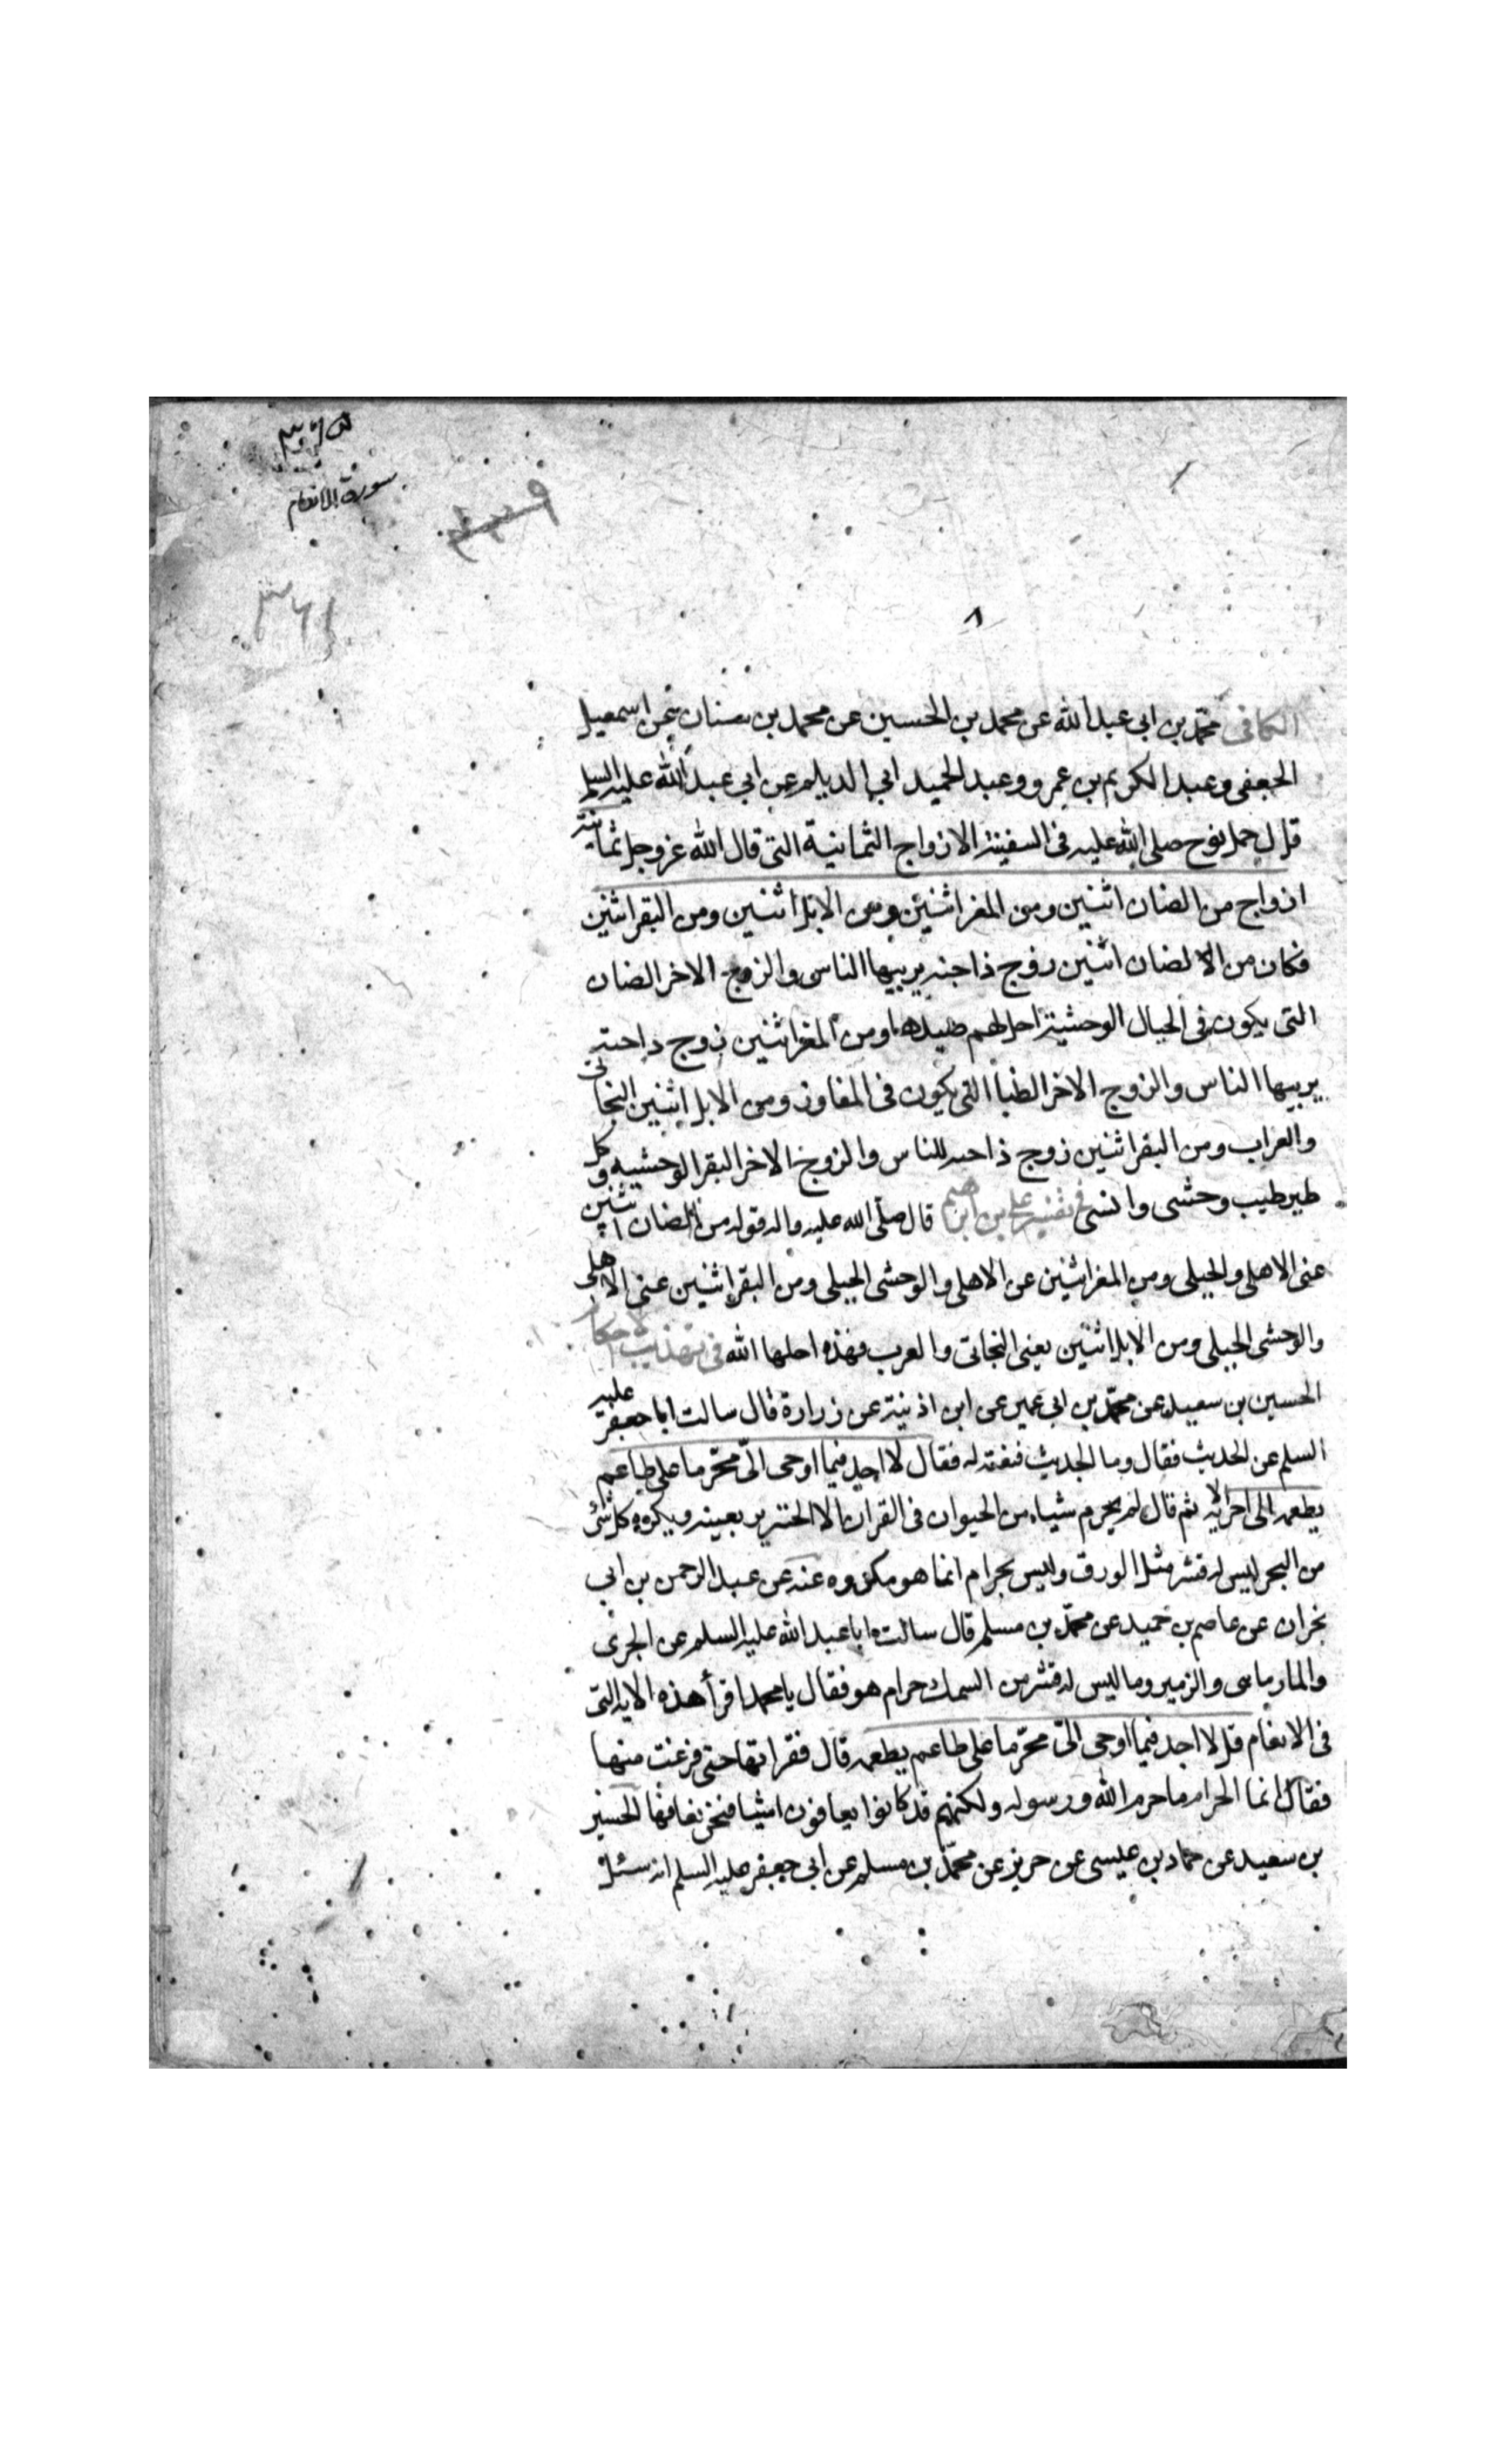 سورة الانعام
٣٦١
٨
الكافى محمد بن ابى عبد الله عن محمد بن الحسين عن محمد بن سنان عن اسمعيل
الجعفى وعبد الكريم بن عمرو وعبد الحميد ابى الديلم عن ابى عبد الله عليه السلم
قال حمل نوح صلى الله عليه فى السفينة الازواج الثمانية التى قال الله عز وجل ثمانية
ازواج من الضان اثنين ومن المعز اثنين ومن الابل اثنين ومن البقر اثنين
فكان من الضان اثنين زوج داجنه يربيها الناس والزوج الاخر الضان
التى يكون فى الجبال الوحشية احل لهم صيدها ومن المعز اثنين زوج داجنه
يربيها الناس والزوج الاخر الظبا التى يكون فى المفاوز ومن الابل اثنين البخاتى
والعراب ومن البقر اثنين زوج داجنه للناس والزوج الاخر البقر الوحشيه وكل
طير طيب وحشى وانسى فى تفسير على بن ابراهيم قال صلى الله عليه واله قوله من الضان اثنين
عنى الاهلى والجبلى ومن المعز اثنين عن الاهلى والوحشى الجبلى ومن البقر اثنين عنى الاهلى
والوحشى الجبلى ومن الابل اثنين يعنى البخاتى والعرب فهذه احلها الله فى تهذيب الاحكام
الحسين بن سعيد عن محمد بن ابى عمير عن ابن اذنية عن زرارة قال سالت ابا جعفر عليه
السلم عن الجريث فقال وما الجريث فنعته له فقال لا اجد فيما اوحى الىّ محرّما على طاعم
يطعمه الى اخر الايه ثم قال لم يحرم شياء من الحيوان فى القران الا الخنزير بعينه ويكره كل شئ
من البحر ليس له قشر مثل الورق وليس بحرام انما هو مكروه عنه عن عبد الرحمن بن ابى
نجران عن عاصم بن حميد عن محمد بن مسلم قال سالت ابا عبد الله عليه السلم عن الجرى
والمارماهى والزمير وما ليس له قشر من السمك حرام هو فقال يا محمد اقرأ هذه الايه التى
فى الانعام قل لا اجد فيما اوحى الىّ محرّما على طاعم يطعمه قال فقراتها حتى فرغت منها
فقال انما الحرام ما حرم الله ورسوله ولكنهم قد كانوا يعافون اشيا فنحن نعافها الحسين
بن سعيد عن حماد بن عيسى عن حريز عن محمد بن مسلم عن ابى جعفر عليه السلم انه سئل